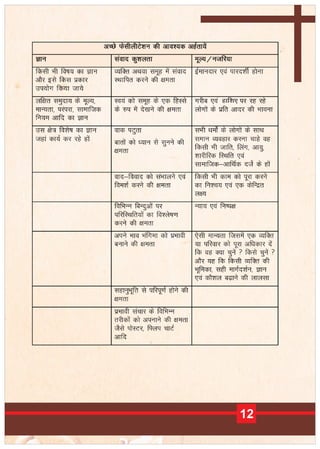 अच्छे फेसीलीटेशन की आवश्यक अर्हतायें
ज्ञान
संवाद कुशलता
मूल्य/नजरिया
किसी भी विषय का ज्ञान
और इसे किस प्रकार
उपयोग किया जाये
व्यक्ति अथवा समूह में संवाद
स्थापित करने की क्षमता
ईमानदार एवं पारदर्शी होना
लक्षित समुदाय के मूल्य,
मान्यता, परंपरा, सामाजिक
नियम आदि का ज्ञान
स्वयं को समूह के एक हिस्से
के रुप में देखने की क्षमता
गरीब एवं हाशिए पर रह रहे
लोगों के प्रति आदर की भावना
उस क्षेत्र विशेष का ज्ञान
जहां कार्य कर रहे हों
वाक पटुता
बातों को ध्यान से सुनने की
क्षमता
सभी धर्मों के लोगों के साथ
समान व्यवहार करना चाहे वह
किसी भी जाति, लिंग, आयु,
शारीरिक स्थिति एवं
सामाजिक–आर्थिक दर्जे के हों
वाद–विवाद को संभालने एवं
विमर्श करने की क्षमता
किसी भी काम को पूरा करने
का निश्चय एवं एक केन्द्रित
लक्ष्य
विभिन्न बिन्दुओं पर
परिस्थितियों का विश्लेषण
करने की क्षमता
न्याय एवं निष्पक्ष
अपने भाव भंगिमा को प्रभावी
बनाने की क्षमता
ऐसी मान्यता जिसमें एक व्यक्ति
या परिवार को पूरा अधिकार दें
कि वह क्या चुने ? किसे चुने ?
और यह कि किसी व्यक्ति की
भूमिका, सही मार्गदर्शन, ज्ञान
एवं कौशल बढ़ाने की लालसा
सहानुभूति से परिपूर्ण होने की
क्षमता
प्रभावी संचार के विभिन्न
तरीकों को अपनाने की क्षमता
जैसे पोस्टर, फ्लिप चार्ट
आदि
12